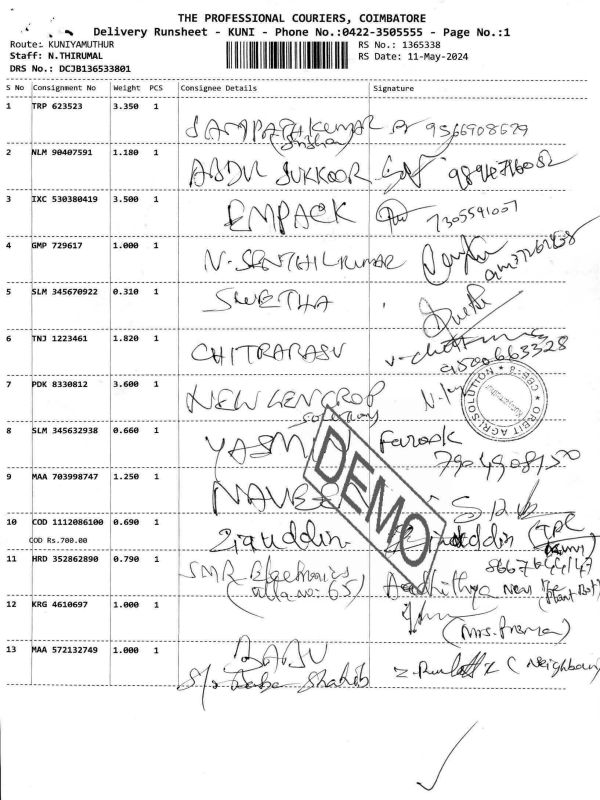 THE PROFESSIONAL COURIERS, COIMBATORE
Delivery Runsheet - KUNI - Phone No.:0422-3505555 - Page No.:1
Route: KUNIYAMUTHUR
RS No.: 1365338
Staff: N.THIRUMAL
RS Date: 11-May-2024
DRS No.: DCJB136533801
S No Consignment No Weight PCS Consignee Details Signature
1 TRP 623523 3.350 1
SAMPATH KUMAR
2 NLM 90407591 1.180 1
ABDUL SUKKOOR
3 IXC 530380419 3.500 1
EMPACK 7305591007
4 GMP 729617 1.000 1
N-SENTHILKUMAR
5 SLM 345670922 0.310 1
SWETHA
6 TNJ 1223461 1.820 1
CHITRARASU 9500663328
7 PDK 8330812 3.600 1
NEW
ORBIT AGRISOLUTION
8 SLM 345632938 0.660 1
Farook
DEMO
9 MAA 703998747 1.250 1
NAVEEN
10 COD 1112086100 0.690 1
COD Rs.700.00
Ziauddin
11 HRD 352862890 0.790 1
SMR Electronics Aadhithya
(villa no: 65)
12 KRG 4610697 1.000 1
13 MAA 572132749 1.000 1
BABU
S/o Shahib (Neighbour)